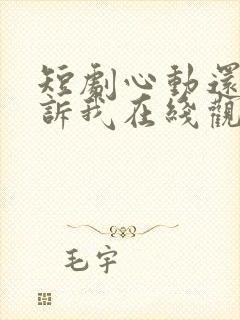 短劇心動還
訴我在綫觀
毛宇